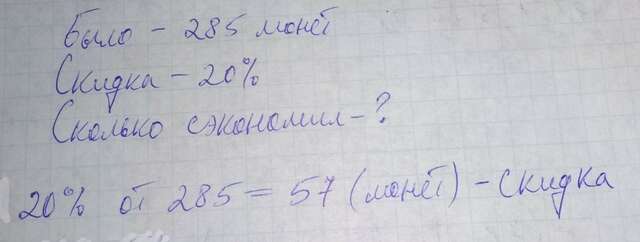 Было - 285 монет
Скидка - 20%
Сколько сэкономил - ?
20% от 285 = 57 (монет) - скидка